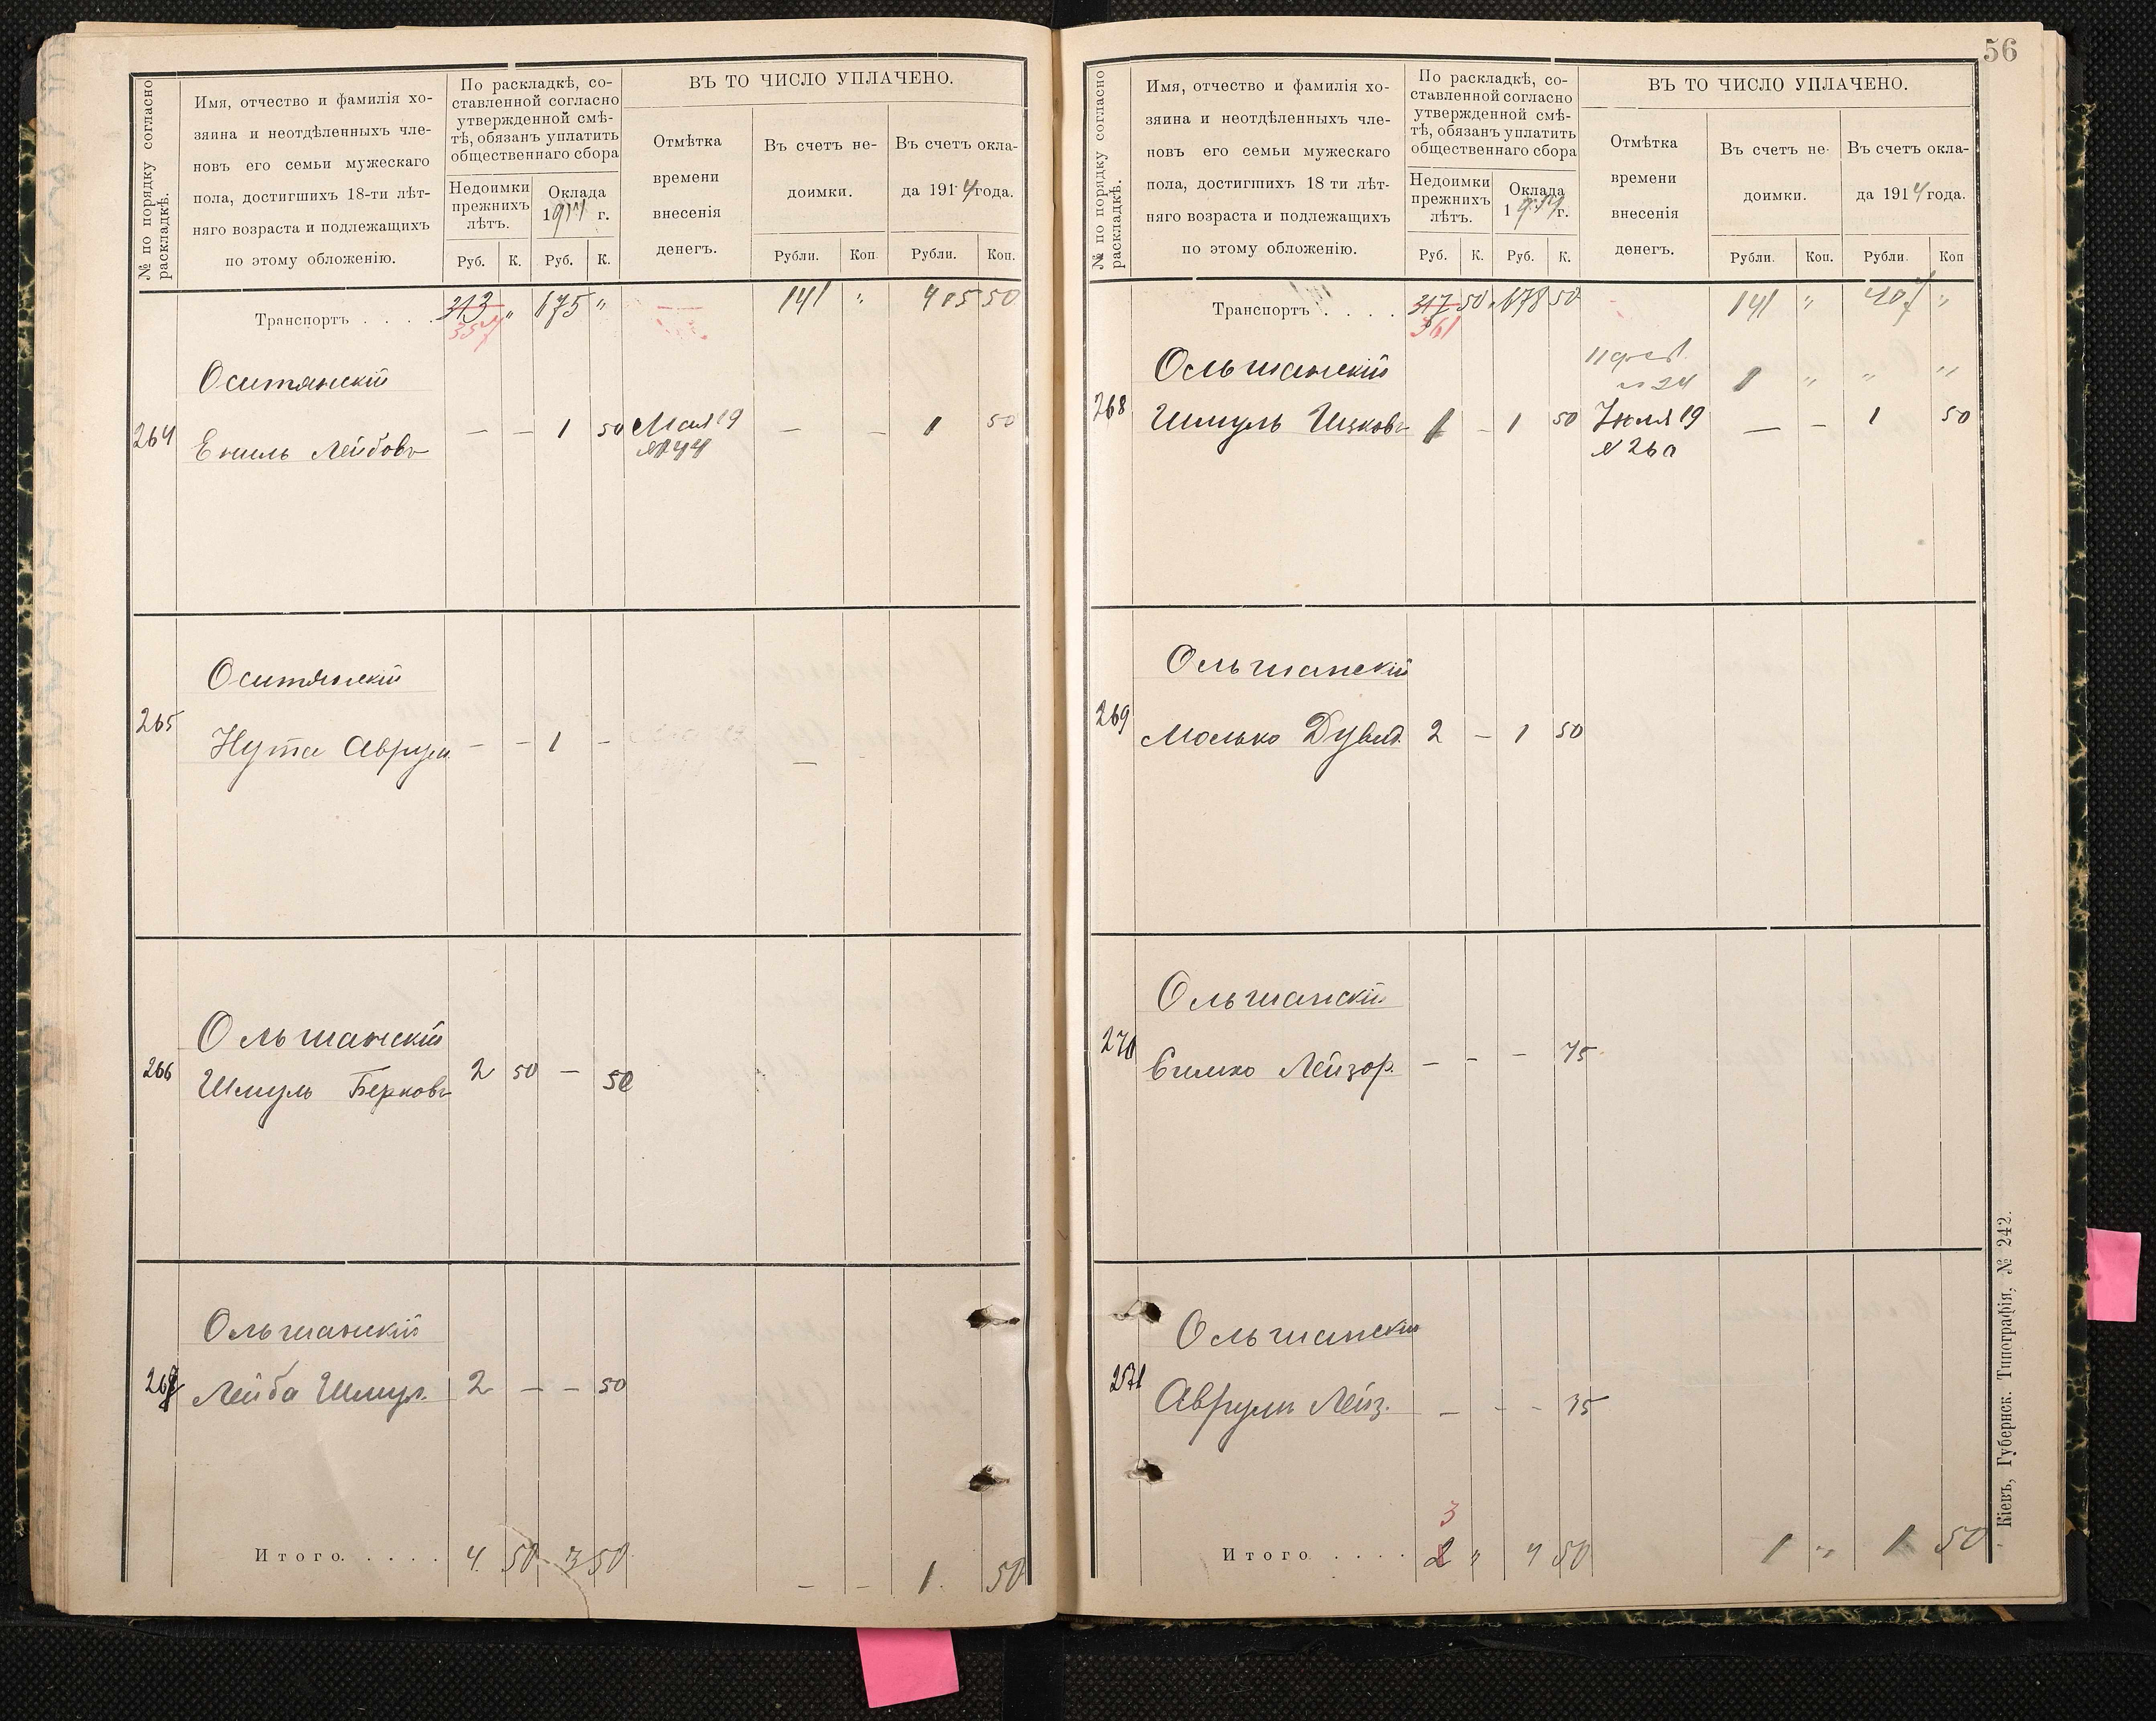 56
№ по порядку согласно раскладкѣ.
Имя, отчество и фамилія хо-
зяина и неотдѣленныхъ чле-
новъ его семьи мужескаго
пола, достигшихъ 18-ти лѣт-
няго возраста и подлежащихъ
по этому обложенію.
По раскладкѣ, со-
ставленной согласно
утвержденной смѣ-
тѣ, обязанъ уплатить
общественнаго сбора
Недоимки
прежнихъ
лѣтъ.
Оклада
1914 г.
Руб. К. Руб. К.
ВЪ ТО ЧИСЛО УПЛАЧЕНО.
Отмѣтка
времени
внесенія
денегъ.
Въ счетъ не-
доимки.
Рубли. Коп.
Въ счетъ окла-
да 1914 года.
Рубли. Коп.
Транспортъ . . . . 313 " 675 " 141 " 405 50
357
Оситянскій
264 Ениль Лейбовъ — — 1 50 Мая 19 — — 1 50
№ 144
Оситянскій
265 Нута Аврум. — — 1 —
Ольшанскій
266 Шмуль Берковъ 2 50 — 50
Ольшанскій
267 Лейба Шмул. 2 — — 50
Итого. . . . . 4 50 3 50 — — 1 50
№ по порядку согласно раскладкѣ.
Имя, отчество и фамилія хо-
зяина и неотдѣленныхъ чле-
новъ его семьи мужескаго
пола, достигшихъ 18 ти лѣт-
няго возраста и подлежащихъ
по этому обложенію.
По раскладкѣ, со-
ставленной согласно
утвержденной смѣ-
тѣ, обязанъ уплатить
общественнаго сбора
Недоимки
прежнихъ
лѣтъ.
Оклада
1914 г.
Руб. К. Руб. К.
ВЪ ТО ЧИСЛО УПЛАЧЕНО.
Отмѣтка
времени
внесенія
денегъ.
Въ счетъ не-
доимки.
Рубли. Коп.
Въ счетъ окла-
да 1914 года.
Рубли. Коп
Транспортъ . . . . 317 50 678 50 141 " 407 "
361
11 фев.
Ольшанскій № 24 1 " " "
268 Шмуль Ицковъ 1 — 1 50 Іюля 19 — — 1 50
№ 260
Ольшанскій
269 Мошко Дувид. 2 — 1 50
Ольшанскій
270 Симко Лейзор. — — — 75
Ольшанскій
271 Аврумъ Лейз. — — — 75
3
Итого . . . . 2 " 4 50 1 " 1 50
Кіевъ, Губернск. Типографія, № 242.